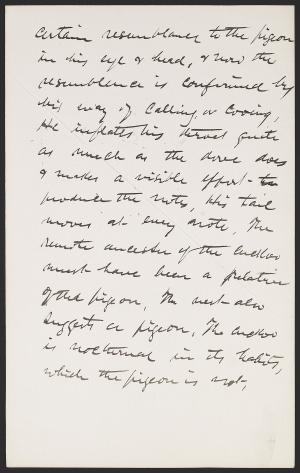 certain resemblance to the pigeon
in his eye & head, & now the
resemblance is confirmed by
his way of calling, or cooing,
He inflates his throat quite
as much as the dove does
& makes a visible effort to
produce the notes, His tail
moves at every note, The
remote ancestor of the cuckoo
must have been a relative
of the pigeon, The nest also
suggests a pigeon, The cuckoo
is nocturnal in its habits,
which the pigeon is not,